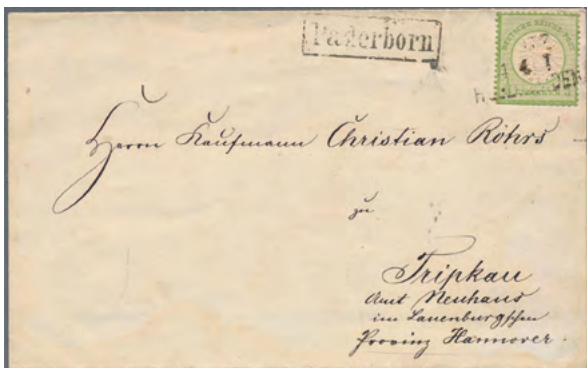 Paderborn
DEUTSCHE REICHS-POST
4 1
Herrn Kaufmann Christian Röhrs
zu
Tripkau
Amt Neuhaus
im Lauenburgschen
Provinz Hannover.